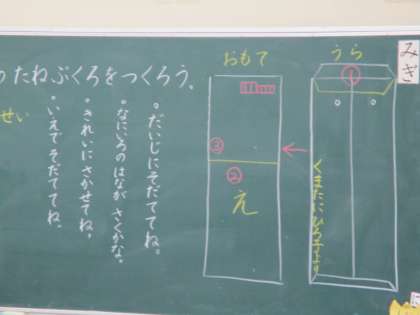 ったねぶくろをつくろう。
せい
・だいじにそだててね。
・なにいろのはながさくかな。
・きれいにさかせてね。
・いえでそだててね。
おもて
③
②
え
うら
①
くまたにひろ子より
みぎ